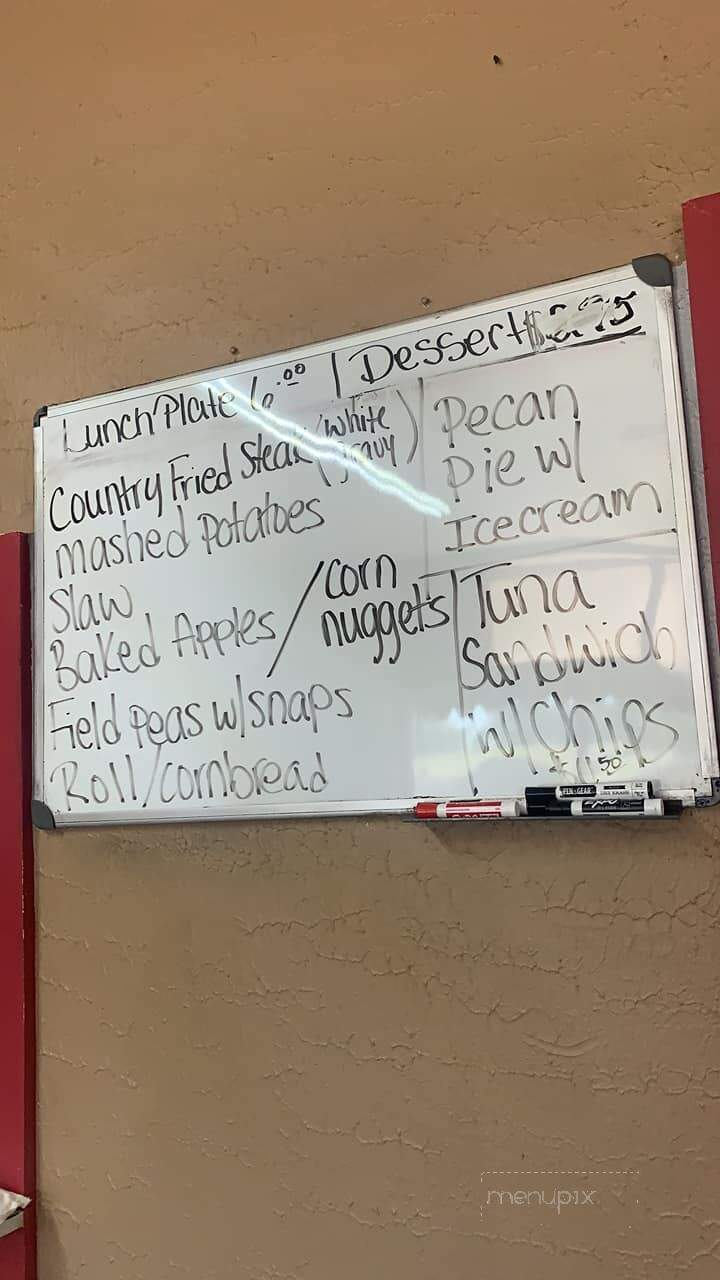 Lunch Plate 6.00 | Dessert
Country Fried Steak (white gravy)
mashed potatoes
Slaw
Baked Apples / corn nuggets
Field peas w/snaps
Roll/cornbread
Pecan
Pie w/
Icecream
Tuna
Sandwich
w/Chips
PEN+GEAR
menupix